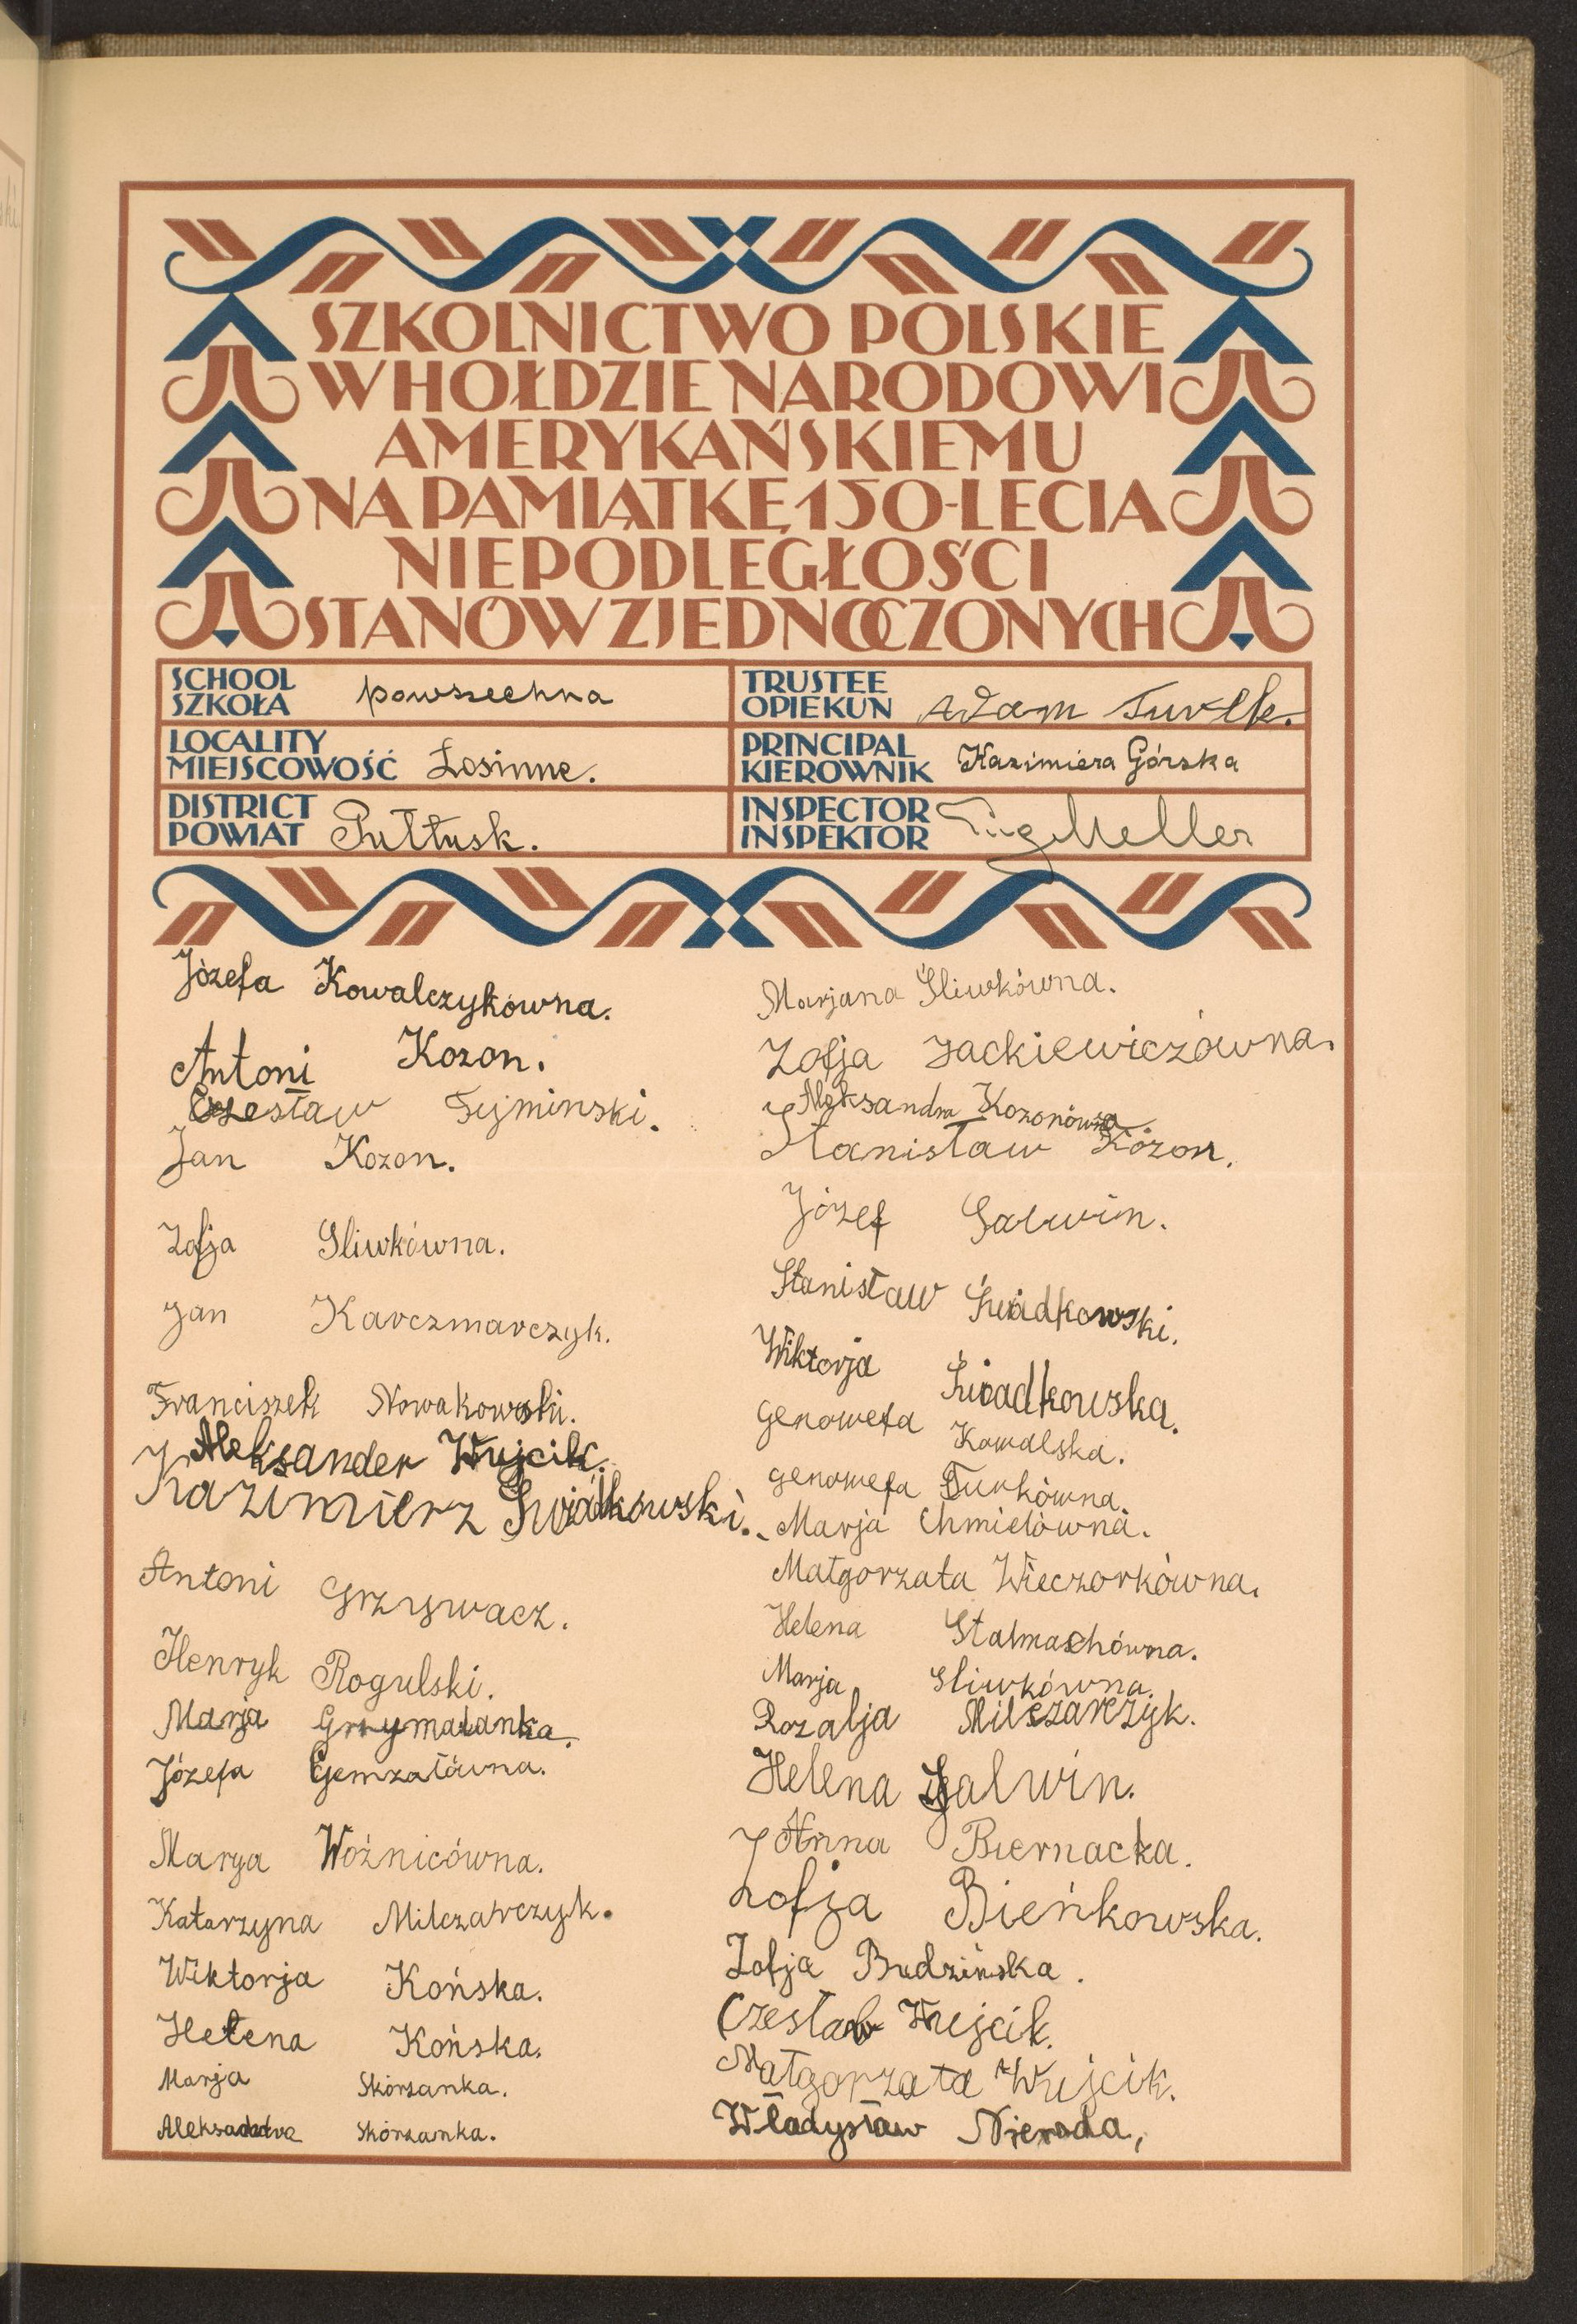 SZKOLNICTWO POLSKIE
W HOŁDZIE NARODOWI
AMERYKAŃSKIEMU
NA PAMIĄTKĘ 150-LECIA
NIEPODLEGŁOŚCI
STANÓW ZJEDNOCZONYCH
SCHOOL
SZKOŁA powszechna
TRUSTEE
OPIEKUN Adam Turek.
LOCALITY
MIEJSCOWOŚĆ Łosinne.
PRINCIPAL
KIEROWNIK Kazimiera Górska
DISTRICT
POWIAT Pułtusk.
INSPECTOR
INSPEKTOR Meller
Józefa Kowalczykówna.
Antoni Kozon.
Czesław Tyminski.
Jan Kozon.
Zofja Sliwkówna.
Jan Karczmarczyk.
Franciszek Nowakowski.
Aleksander Wujcik.
Kazimierz Świadkowski.
Antoni Grzywacz.
Henryk Rogulski.
Marja Grzymałanka.
Józefa Gemzałówna.
Marya Woźnicówna.
Katarzyna Milczarczyk.
Wiktorja Końska.
Helena Końska.
Marja Skórzanka.
Aleksadra Skórzanka.
Marjana Sliwkówna.
Zofja Jackiewiczówna.
Aleksandra Kozonówna
Stanisław Kozon.
Józef Galwin.
Stanisław Świadkowski.
Wiktorja Świadkowska.
Genowefa Kowalska.
Genowefa Turkówna.
Marja Chmielówna.
Małgorzata Wieczorkówna.
Helena Stalmachówna.
Marja Sliwkówna.
Rozalja Milczarczyk.
Helena Galwin.
Anna Biernacka.
Zofja Bieńkowska.
Zofja Budzińska.
Czesław Wujcik.
Małgorzata Wujcik.
Władysław Nieroda,